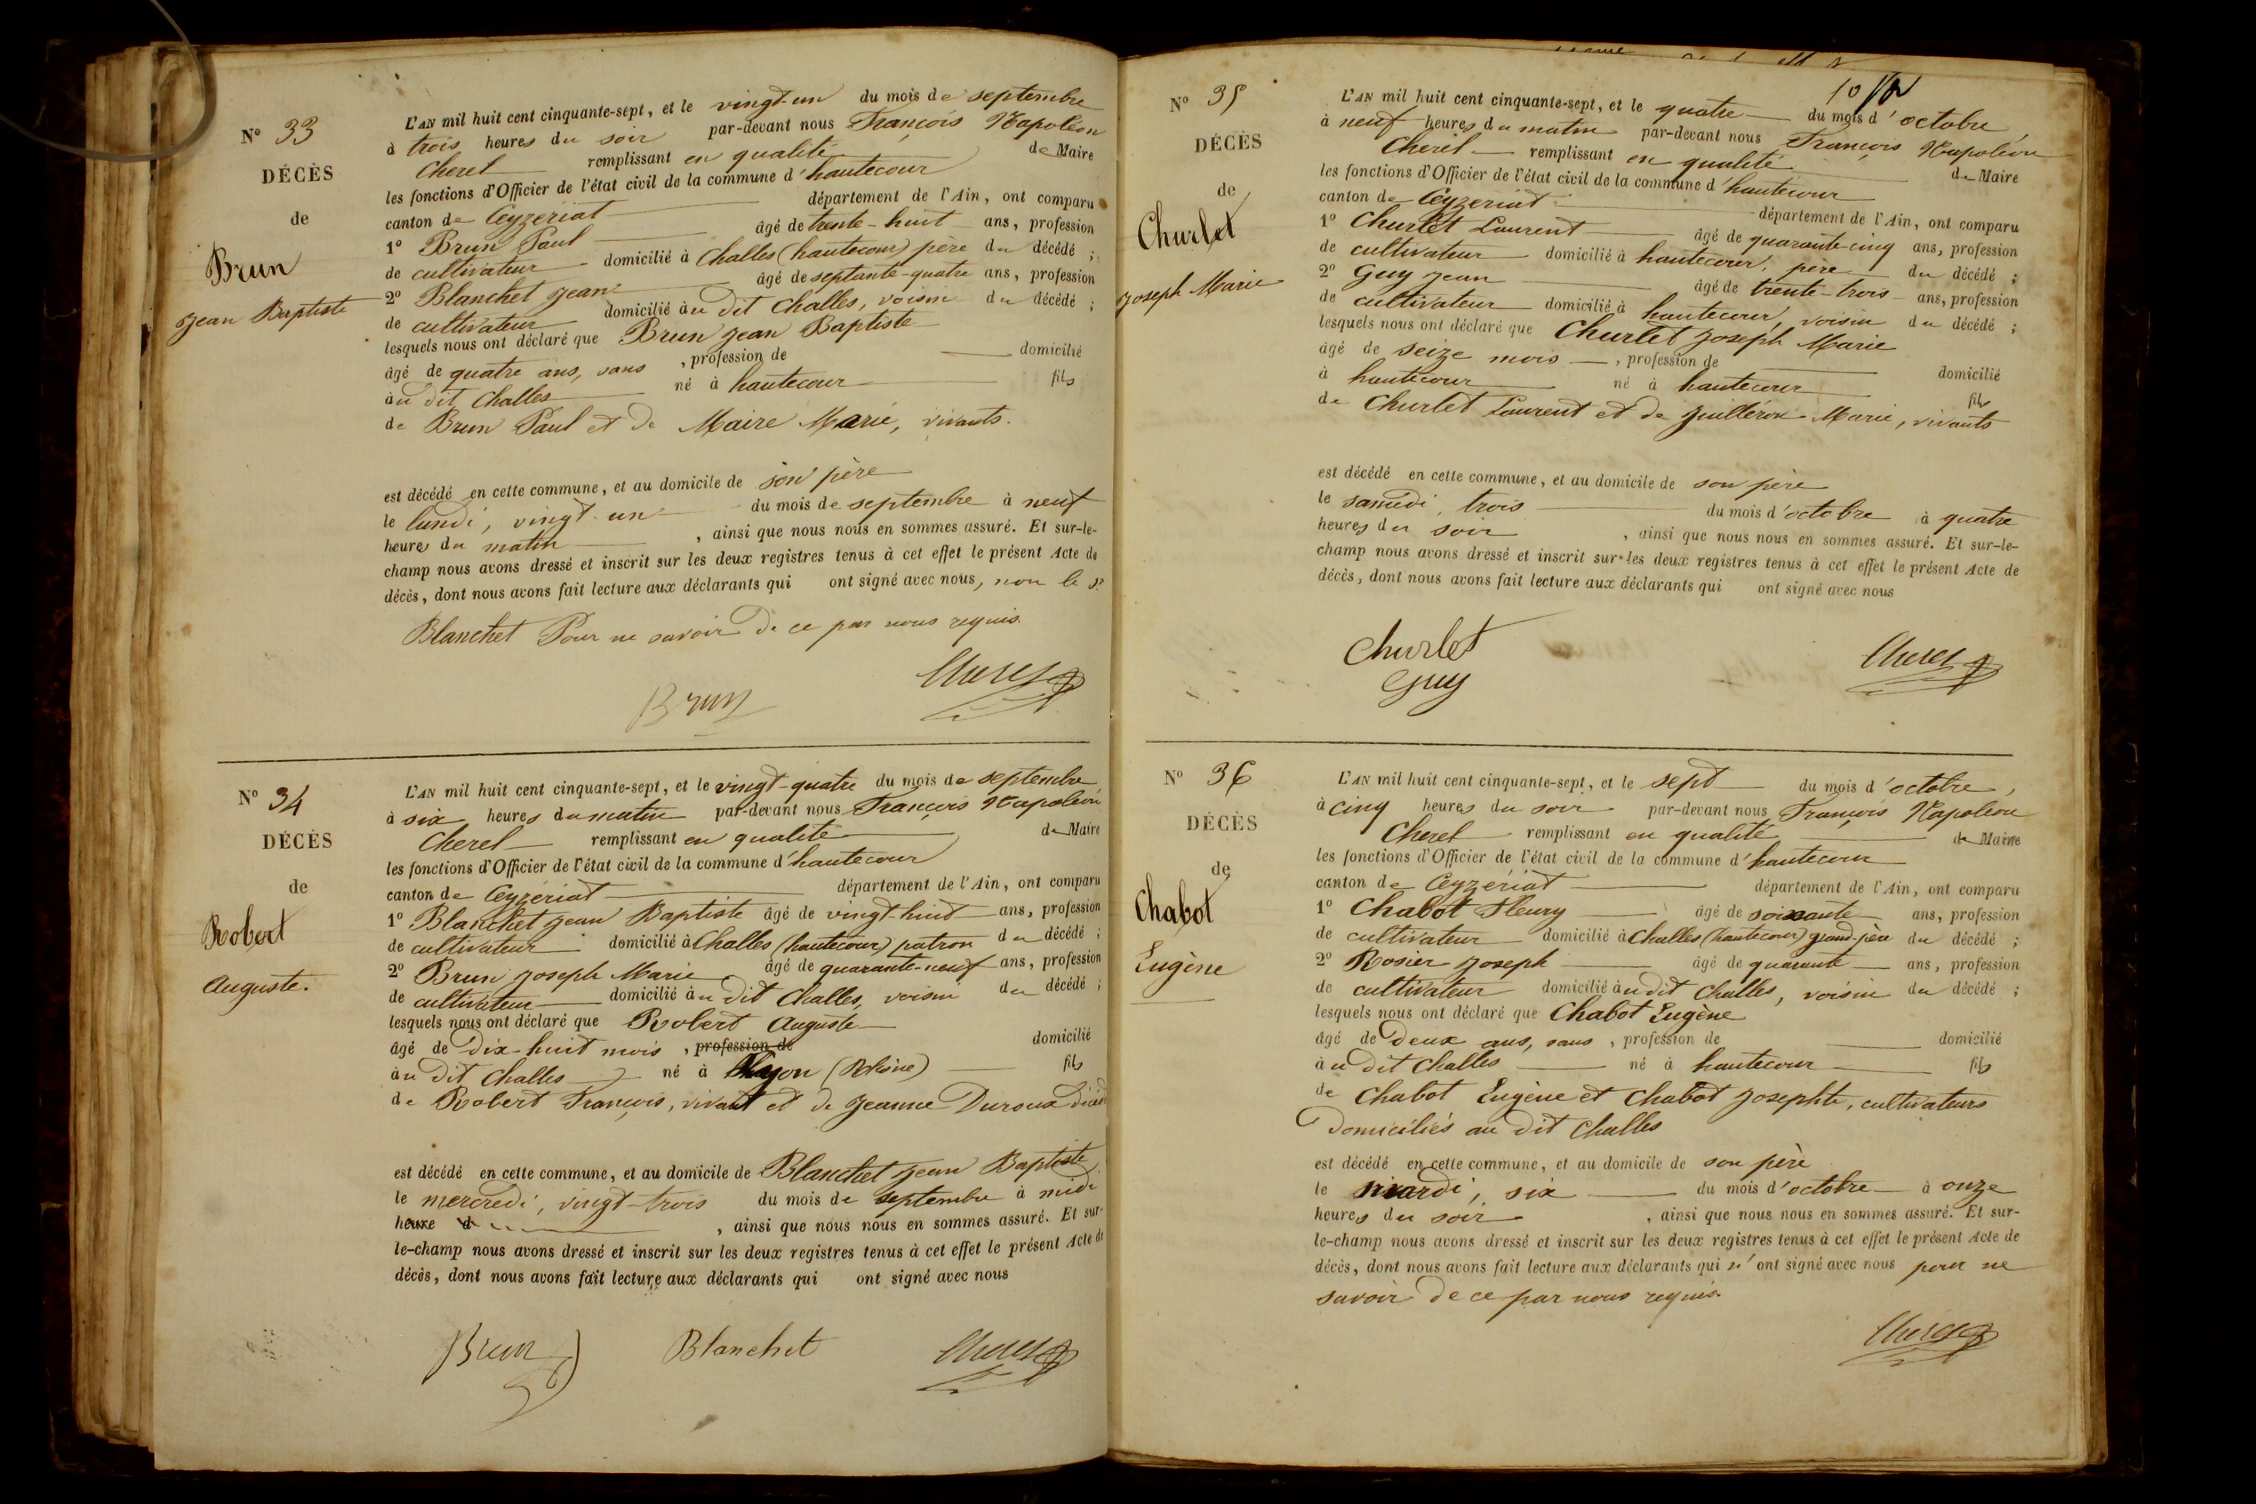 N° 33
DÉCÈS
de
Brun
Jean Baptiste
L'AN mil huit cent cinquante-sept, et le vingt-un du mois de septembre
à trois heures du soir par-devant nous François Napoléon
Cherel remplissant en qualité de Maire
les fonctions d'Officier de l'état civil de la commune d'hautecour
canton de Ceyzeriat département de l'Ain, ont comparu
1° Brun Paul âgé de trente-huit ans, profession
de cultivateur domicilié à Challes (hautecour) père du décédé ;
2° Blanchet Jean âgé de septante-quatre ans, profession
de cultivateur domicilié au dit Challes, voisin du décédé ;
lesquels nous ont déclaré que Brun Jean Baptiste
âgé de quatre ans, sans , profession de domicilié
au dit Challes né à hautecour fils
de Brun Paul et de Maire Marie, vivants.
est décédé en cette commune, et au domicile de son père
le lundi, vingt-un du mois de septembre à neuf
heures du matin , ainsi que nous nous en sommes assuré. Et sur-le-
champ nous avons dressé et inscrit sur les deux registres tenus à cet effet le présent Acte de
décès, dont nous avons fait lecture aux déclarants qui ont signé avec nous, non le
Blanchet Pour ne savoir de ce par nous requis.
Cherel
Brun
N° 34
DÉCÈS
de
Robert
Auguste.
L'AN mil huit cent cinquante-sept, et le vingt-quatre du mois de septembre
à six heures du matin par-devant nous François Napoléon
Cherel remplissant en qualité de Maire
les fonctions d'Officier de l'état civil de la commune d'hautecour
canton de Ceyzériat département de l'Ain, ont comparu
1° Blanchet Jean Baptiste âgé de vingt-huit ans, profession
de cultivateur domicilié à Challes (hautecour) patron du décédé ;
2° Brun Joseph Marie âgé de quarante-neuf ans, profession
de cultivateur domicilié au dit Challes, voisin du décédé ;
lesquels nous ont déclaré que Robert Auguste
âgé de dix-huit mois , profession de domicilié
au dit Challes né à Lyon (Rhône) fils
de Robert François, vivant et de Jeanne Duroux
est décédé en cette commune, et au domicile de Blanchet Jean Baptiste
le mercredi, vingt-trois du mois de septembre à midi
heure d , ainsi que nous nous en sommes assuré. Et sur-
le-champ nous avons dressé et inscrit sur les deux registres tenus à cet effet le présent Acte de
décès, dont nous avons fait lecture aux déclarants qui ont signé avec nous
Brun Blanchet Cherel
10
N° 35
DÉCÈS
de
Churlet
Joseph Marie
L'AN mil huit cent cinquante-sept, et le quatre du mois d'octobre
à neuf heures du matin par-devant nous François Napoléon
Cherel remplissant en qualité de Maire
les fonctions d'Officier de l'état civil de la commune d'hautecour
canton de Ceyzeriat département de l'Ain, ont comparu
1° Churlet Laurent âgé de quarante-cinq ans, profession
de cultivateur domicilié à hautecour, père du décédé ;
2° Guy Jean âgé de trente-trois ans, profession
de cultivateur domicilié à hautecour, voisin du décédé ;
lesquels nous ont déclaré que Churlet Joseph Marie
âgé de seize mois , profession de domicilié
à hautecour né à hautecour fils
de Churlet Laurent et de Marie, vivants
est décédé en cette commune, et au domicile de son père
le samedi, trois du mois d'octobre à quatre
heures du soir , ainsi que nous nous en sommes assuré. Et sur-le-
champ nous avons dressé et inscrit sur les deux registres tenus à cet effet le présent Acte de
décès, dont nous avons fait lecture aux déclarants qui ont signé avec nous
Churlet Cherel
Guy
N° 36
DÉCÈS
de
Chabot
Eugène
L'AN mil huit cent cinquante-sept, et le sept du mois d'octobre,
à cinq heures du soir par-devant nous François Napoléon
Cherel remplissant en qualité de Maire
les fonctions d'Officier de l'état civil de la commune d'hautecour
canton de Ceyzériat département de l'Ain, ont comparu
1° Chabot Fleury âgé de soixante ans, profession
de cultivateur domicilié à Challes (hautecour) grand-père du décédé ;
2° Rosier Joseph âgé de quarante ans, profession
de cultivateur domicilié au dit Challes, voisin du décédé ;
lesquels nous ont déclaré que Chabot Eugène
âgé de deux ans, sans , profession de domicilié
au dit Challes né à hautecour fils
de Chabot Eugène et Chabot Josephte, cultivateurs
Domiciliés au dit Challes
est décédé en cette commune, et au domicile de son père
le mardi, six du mois d'octobre à onze
heures du soir , ainsi que nous nous en sommes assuré. Et sur-
le-champ nous avons dressé et inscrit sur les deux registres tenus à cet effet le présent Acte de
décès, dont nous avons fait lecture aux déclarants qui n'ont signé avec nous pour ne
savoir de ce par nous requis.
Cherel